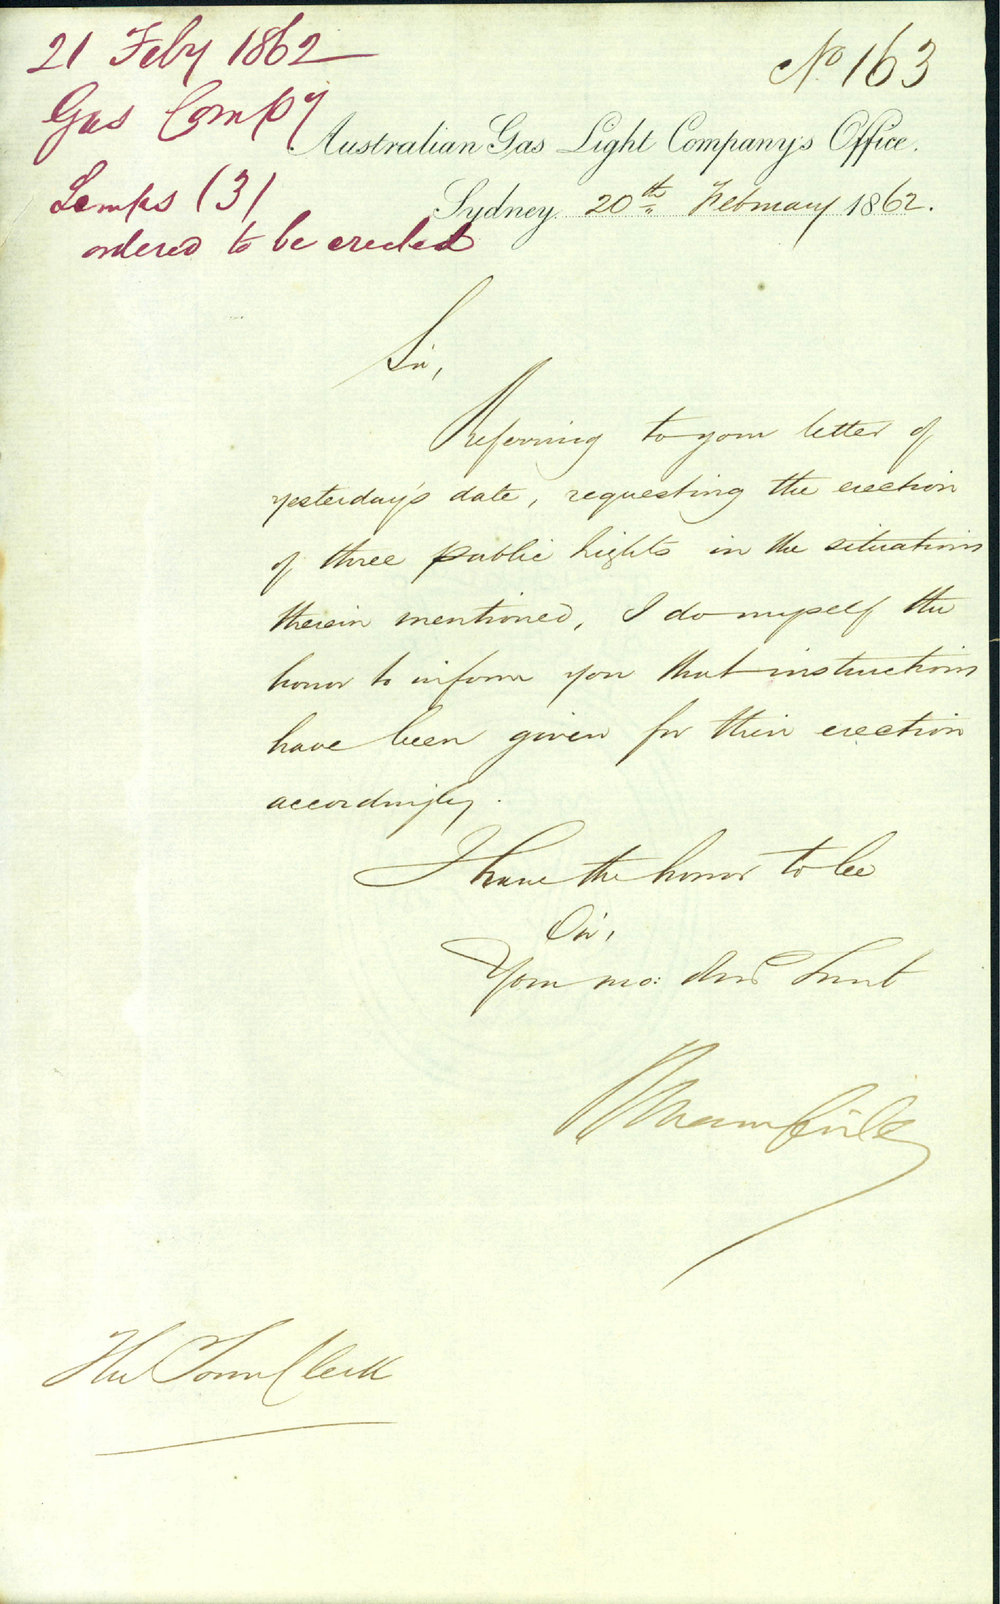 21 Feby 1862
Gas Compy
Lamps (3)
ordered to be erected
No 163
Australian Gas Light Company's Office.
Sydney 20th February 1862.
Sir,
Referring to your letter of
yesterday's date, requesting the erection
of three public lights in the situations
therein mentioned, I do myself the
honor to inform you that instructions
have been given for their erection
accordingly.
I have the honor to be
Sir,
Your mo: Obed Servt
The Town Clerk